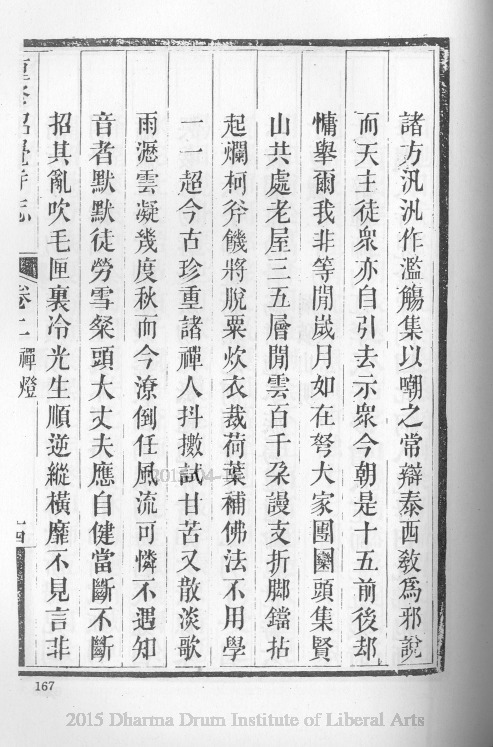 諸方汎汎作濫觴集以嘲之常辯泰西敎爲邪說
而天主徒衆亦自引去示衆今朝是十五前後却
慵舉爾我非等閒歲月如在弩大家團圞頭集賢
山共處老屋三五層閒雲百千朶謾支折脚鐺拈
起爛柯斧饑將脫粟炊衣裁荷葉補佛法不用學
一一超今古珍重諸禪人抖擻試甘苦又散淡歌
雨瀝雲凝幾度秋而今潦倒任風流可憐不遇知
音者默默徒勞雪粲頭大丈夫應自健當斷不斷
招其亂吹毛匣裏冷光生順逆縱橫靡不見言非
卷二 禪燈
167
2015 Dharma Drum Institute of Liberal Arts